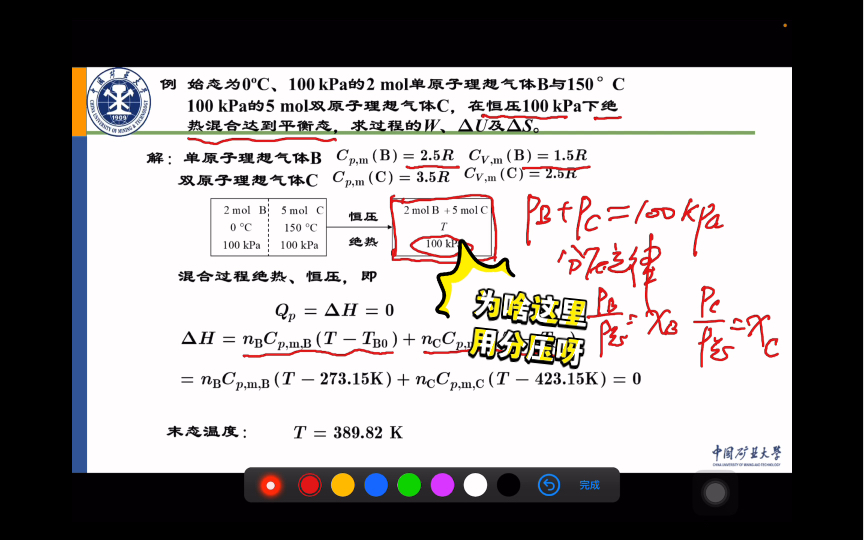 例 始态为0℃、100 kPa的2 mol单原子理想气体B与150°C
100 kPa的5 mol双原子理想气体C，在恒压100 kPa下绝
热混合达到平衡态，求过程的W、ΔU及ΔS。
解：单原子理想气体B Cp,m (B) = 2.5R CV,m (B) = 1.5R
双原子理想气体C Cp,m (C) = 3.5R CV,m (C) = 2.5R
2 mol B 5 mol C 恒压 2 mol B + 5 mol C
0 °C 150 °C T
100 kPa 100 kPa 绝热 100 kP
PB + PC = 100 kPa
分压定律
混合过程绝热、恒压，即
Qp = ΔH = 0
PB/P总 = XB PC/P总 = XC
为啥这里
用分压呀
ΔH = nBCp,m,B (T − TB0) + nCCp,
= nBCp,m,B (T − 273.15K) + nCCp,m,C (T − 423.15K) = 0
末态温度： T = 389.82 K
中国矿业大学
CHINA UNIVERSITY OF MINING & TECHNOLOGY
1909
完成